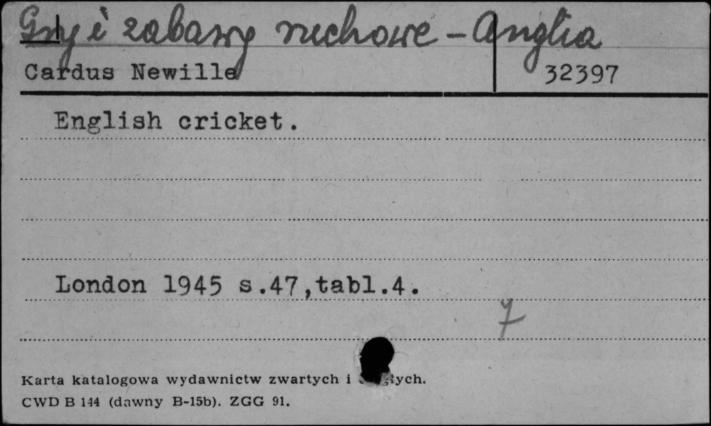 Gry i zabawy ruchowe - Anglia
Cardus Newille 32397
English cricket.
London 1945 s.47,tabl.4.
7
Karta katalogowa wydawnictw zwartych i
CWD B 144 (dawny B-15b). ZGG 91.